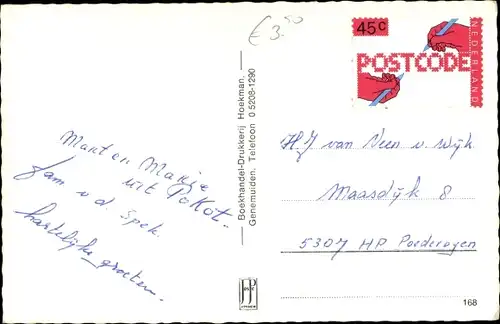 € 3.50
45c
POSTCODE
NEDERLAND
Mart en Marije
uit
fam v.d. Spek.
hartelijke groeten.
Boekhandel-Drukkerij Hoekman,
Genemuiden. Telefoon 0 5208-1290
HJ van Veen v. Wijk
Maasdijk 8
5307 HP Poederoyen
168